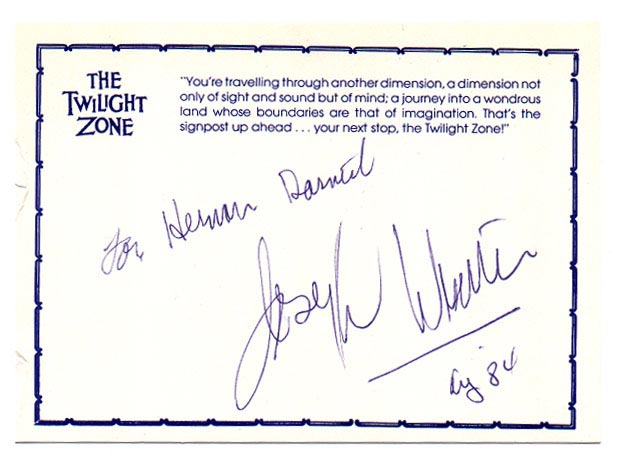 THE
TWILIGHT
ZONE
"You're travelling through another dimension, a dimension not
only of sight and sound but of mind; a journey into a wondrous
land whose boundaries are that of imagination. That's the
signpost up ahead . . . your next stop, the Twilight Zone!"
For Hernan
Joseph
'84